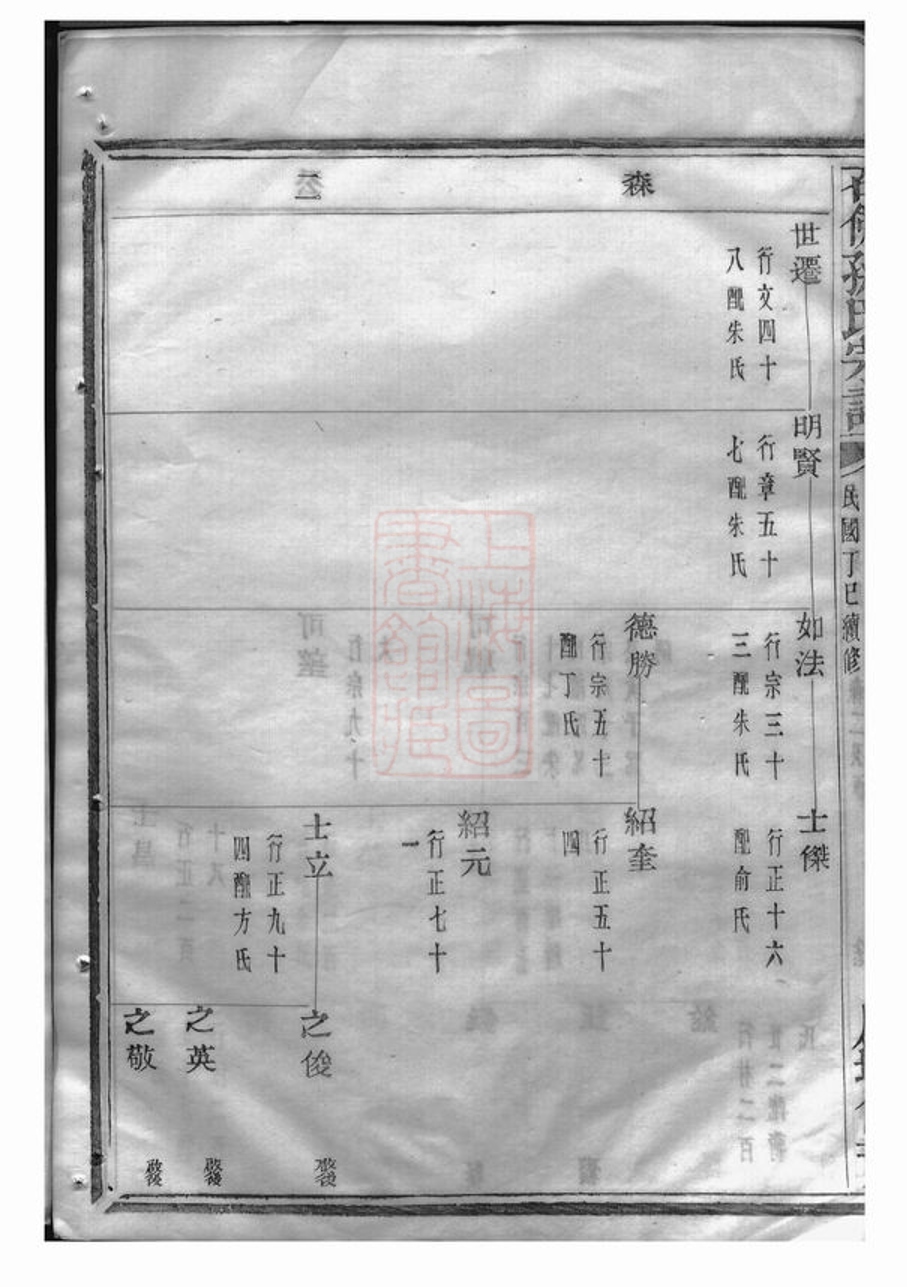 孫氏宗譜
民國丁巳續修
森
世遷
行文四十
八配朱氏
明賢
行章五十
七配朱氏
如法
行宗三十
三配朱氏
德勝
行宗五十
配丁氏
士傑
行正十六
配俞氏
紹奎
行正五十
四
紹元
行正七十
一
士立
行正九十
四配方氏
之俊
啓後
之英
啓後
之敬
啓後
上海圖
書館藏